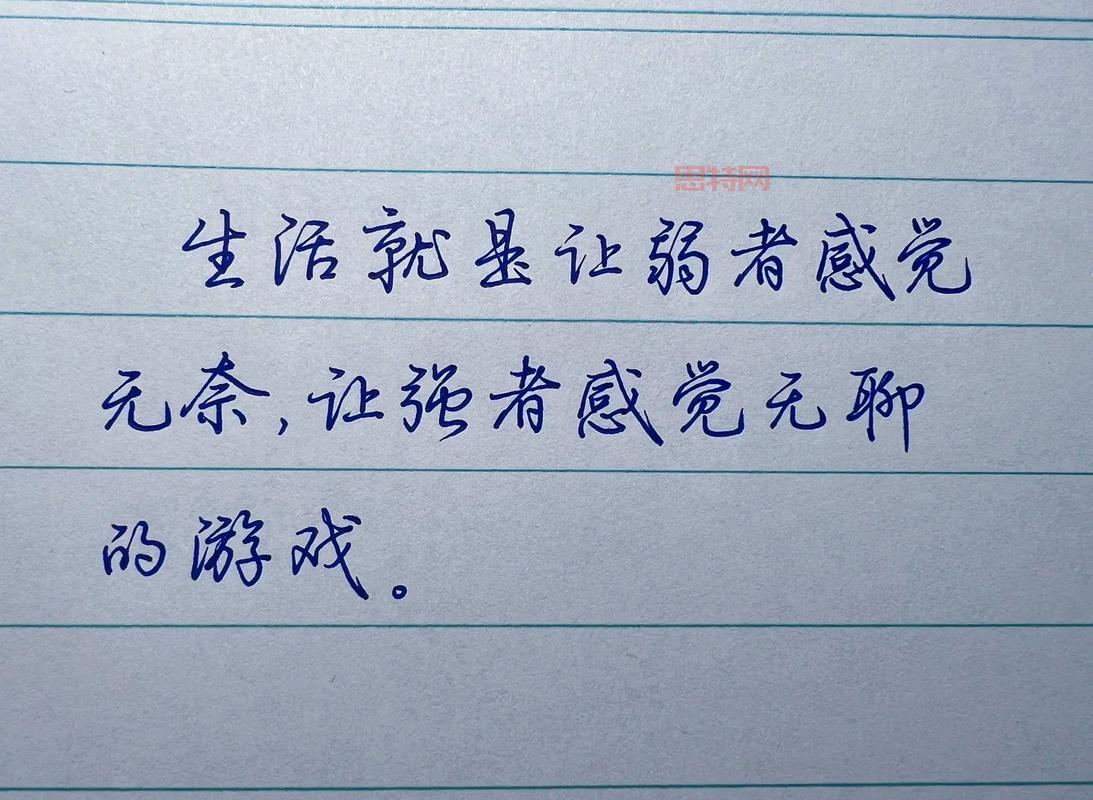 思特网
生活就是让弱者感觉
无奈,让强者感觉无聊
的游戏。